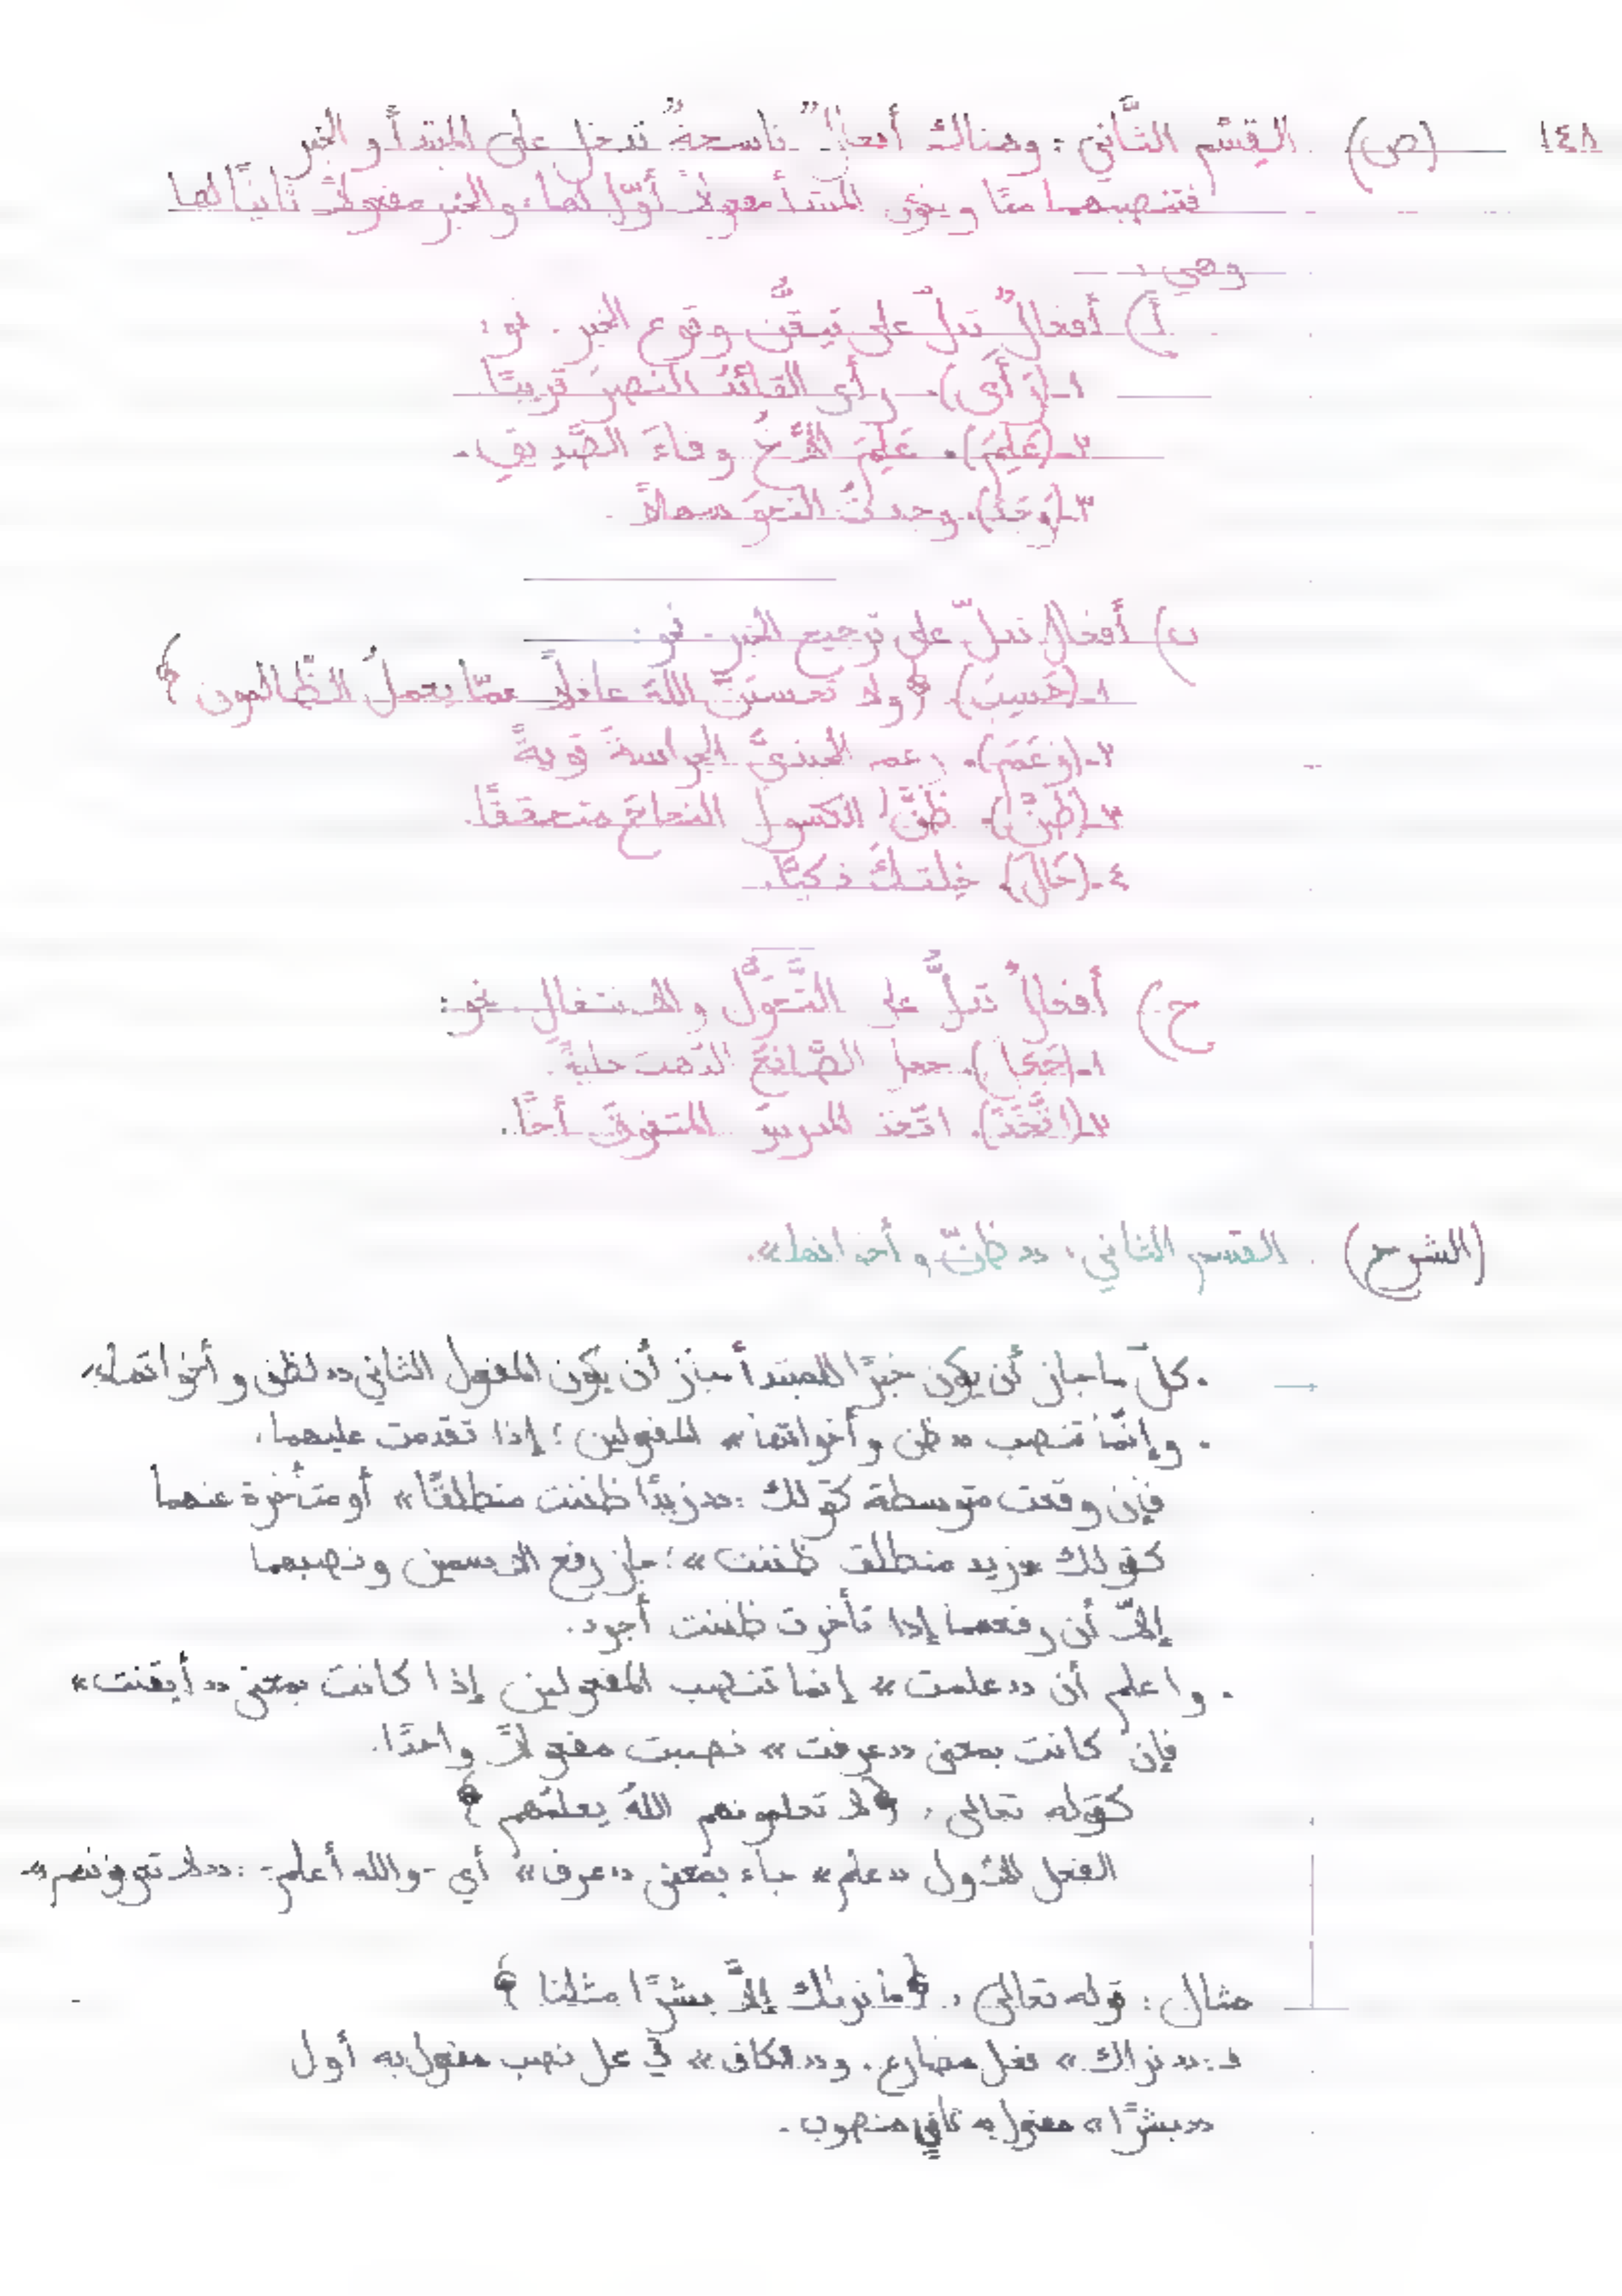 ١٤٨ (ص) القِسْم الثَّاني: وهنالك أفعالٌ ناسخةٌ تدخل على المبتدأ و الخبر
فتنصبهما معًا ويكون المبتدأ مفعولاً أوّل لها، والخبر مفعولاً ثانياً لها
وهي:
أ) أفعالٌ تدلّ على تيقُّن وقوع الخبر. نحو:
١ـ (رَأَى). رأى القائدُ النصرَ قريبًا
٢ـ (عَلِمَ). عَلِمَ الأخُ وفاءَ الصَّدِيقِ.
٣ـ (وَجَدَ). وجدتُ النحوَ سهلاً.
ب) أفعال تدلّ على ترجيح الخبر. نحو:
١ـ (حَسِبَ). ﴿ولا تحسبنَّ اللهَ غافلاً عمّا يعملُ الظَّالمون﴾
٢ـ (زَعَمَ). زعم الجنديُّ الحراسةَ قويةً
٣ـ (ظَنَّ). ظَنَّ الكسولُ النجاحَ متحققًا.
٤ـ (خَالَ). خِلتكَ ذكيًّا.
ج) أفعالٌ تدلُّ على التَّحَوُّل والانتقال. نحو:
١ـ (جَعَلَ). جعل الصَّائغُ الذهبَ حليةً.
٢ـ (اتَّخَذَ). اتّخذ المدرسُ المتفوقَ أخًا.
(الشرح) القسم الثاني: «ظنّ و أخواتها».
. كلّ ما جاز أن يكون خبرًا للمبتدأ جاز أن يكون المفعول الثاني «لظن و أخواتها»
. وإنّما تنصب «ظن وأخواتها» المفعولين؛ إذا تقدمت عليهما.
فإن وقعت متوسطة كقولك: «زيدًا ظننت منطلقًا» أو متأخرة عنهما
كقولك «زيد منطلق ظننت»؛ جاز رفع الاسمين ونصبهما
إلاّ أن رفعهما إذا تأخرت ظننت أجود.
. واعلم أن «علمت» إنما تنصب المفعولين إذا كانت بمعنى «أيقنت»
فإن كانت بمعنى «عرفت» نصبت مفعولاً واحدًا.
كقوله تعالى: ﴿لا تعلمونهم اللهُ يعلمُهم﴾
الفعل الأول «علم» جاء بمعنى «عرف» أي -والله أعلم-: «لا تعرفونهم»
مثال: قوله تعالى: ﴿ما نراك إلاَّ بشرًا مثلنا﴾
فـ: «نراك» فعل مضارع. و«الكاف» في محل نصب مفعول به أول
«بشرًا» مفعول به ثاني منصوب.